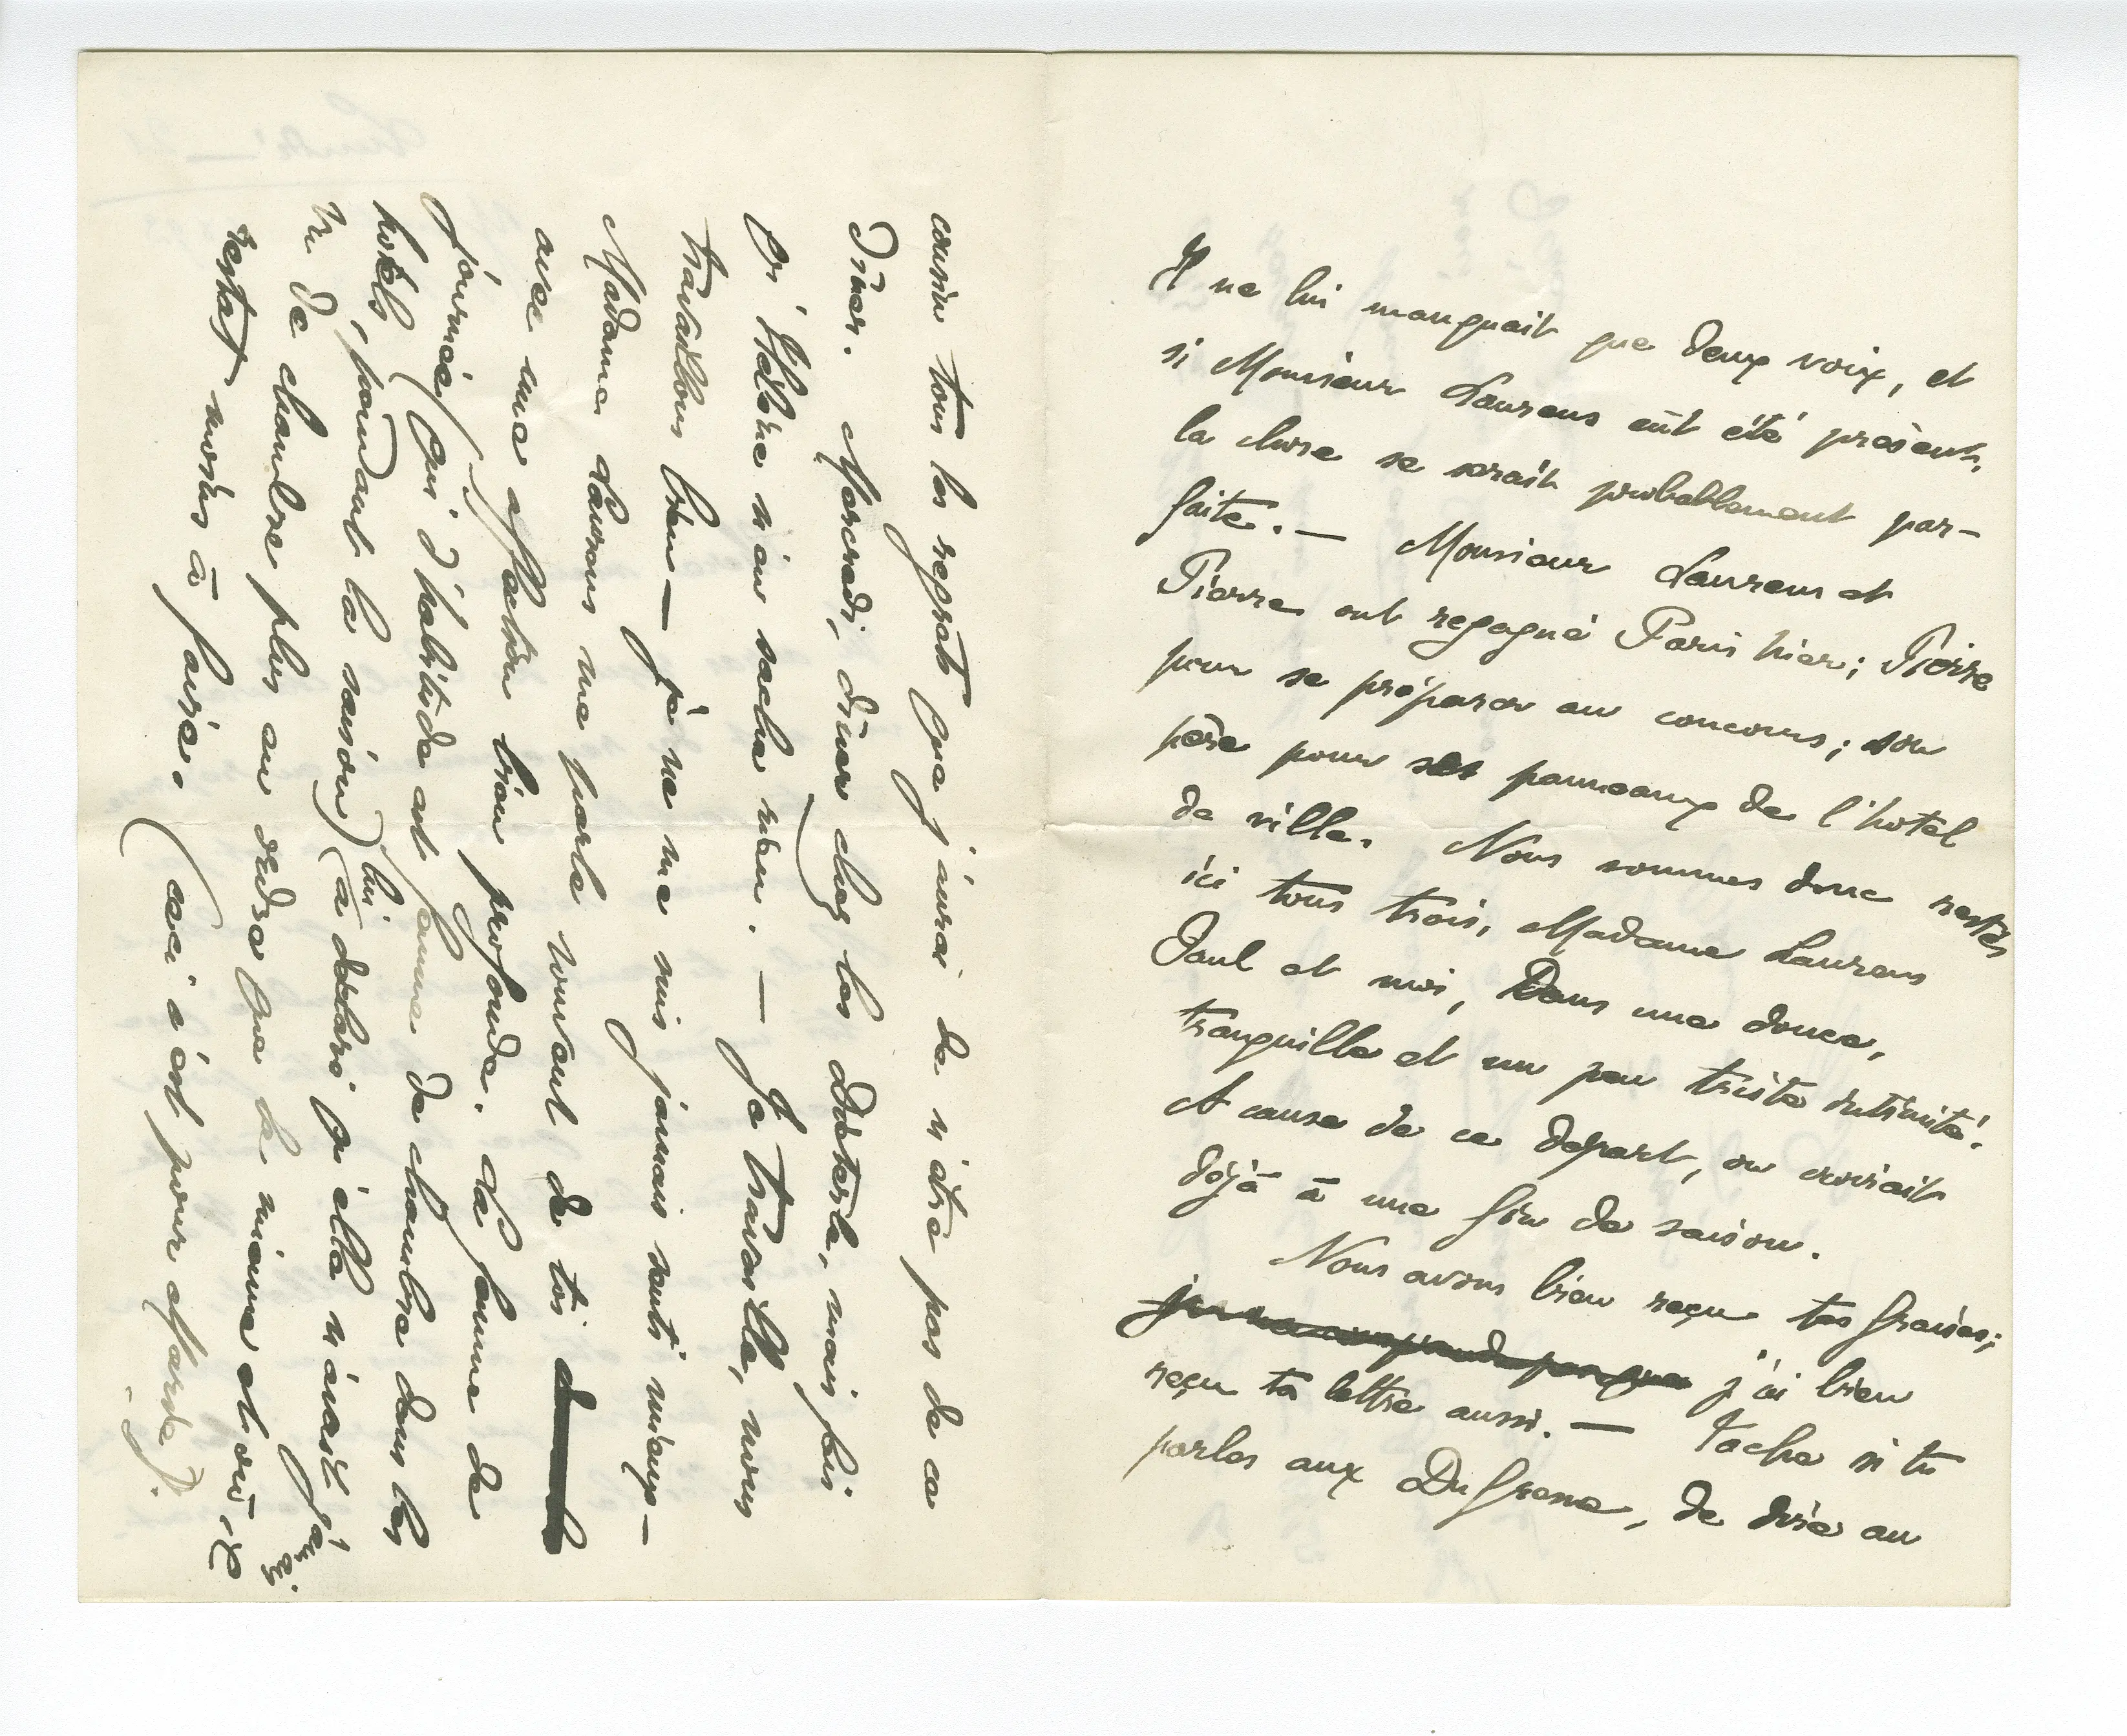 Il ne lui manquait que deux voix, et
si Monsieur Laurens eût été présent,
la chose se serait probablement par-
faite. — Monsieur Laurens et
Pierre ont regagné Paris hier; Pierre
pour se préparer au concours; son
père pour ses panneaux de l'hotel
de ville. Nous sommes donc restés
ici tous trois, Madame Laurens
Paul et moi, Dans une douce,
tranquille et un peu triste intimité.
A cause de ce départ, on croirait
déjà à une fin de saison.
Nous avons bien reçu tes fraises;
j'ai bien
reçu ta lettre aussi. — Tache si tu
parles aux Dufresne, de dire au
cousin tous les regrets que j'aurai de n'être pas de ce
diner. Mercredi, diner chez les mais fais
qu'Hélène n'en sache rien. — Je travaille, nous
travaillons bien — je ne me suis jamais senti mieux —
Madame Laurens me parle souvent de toi
avec une affection bien profonde. La femme de
journée (qui d'habitude est femme de chambre dans les
hotels, pendant la saison) lui (a déclaré qu'elle n'avait jamais
vu de chambre plus en ordre que la mienne et où il
restat moins à faire. (ceci c'est pour